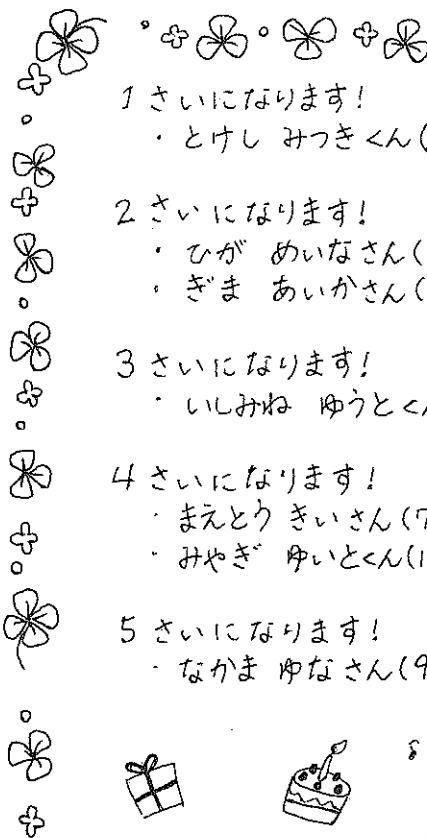 1さいになります!
・とけし みつきくん(
2さいになります!
・ひが めいなさん(
・ぎま あいかさん(
3さいになります!
・いしみね ゆうとく
4さいになります!
・まえとう きいさん(7
・みやぎ ゆいとくん(1
5さいになります!
・なかま ゆなさん(9